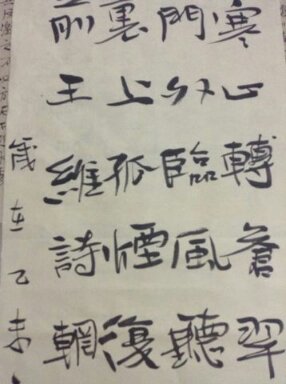 寒山轉蒼翠
門外臨風聽
裏上孤煙復
前王維詩輞
歲在乙未